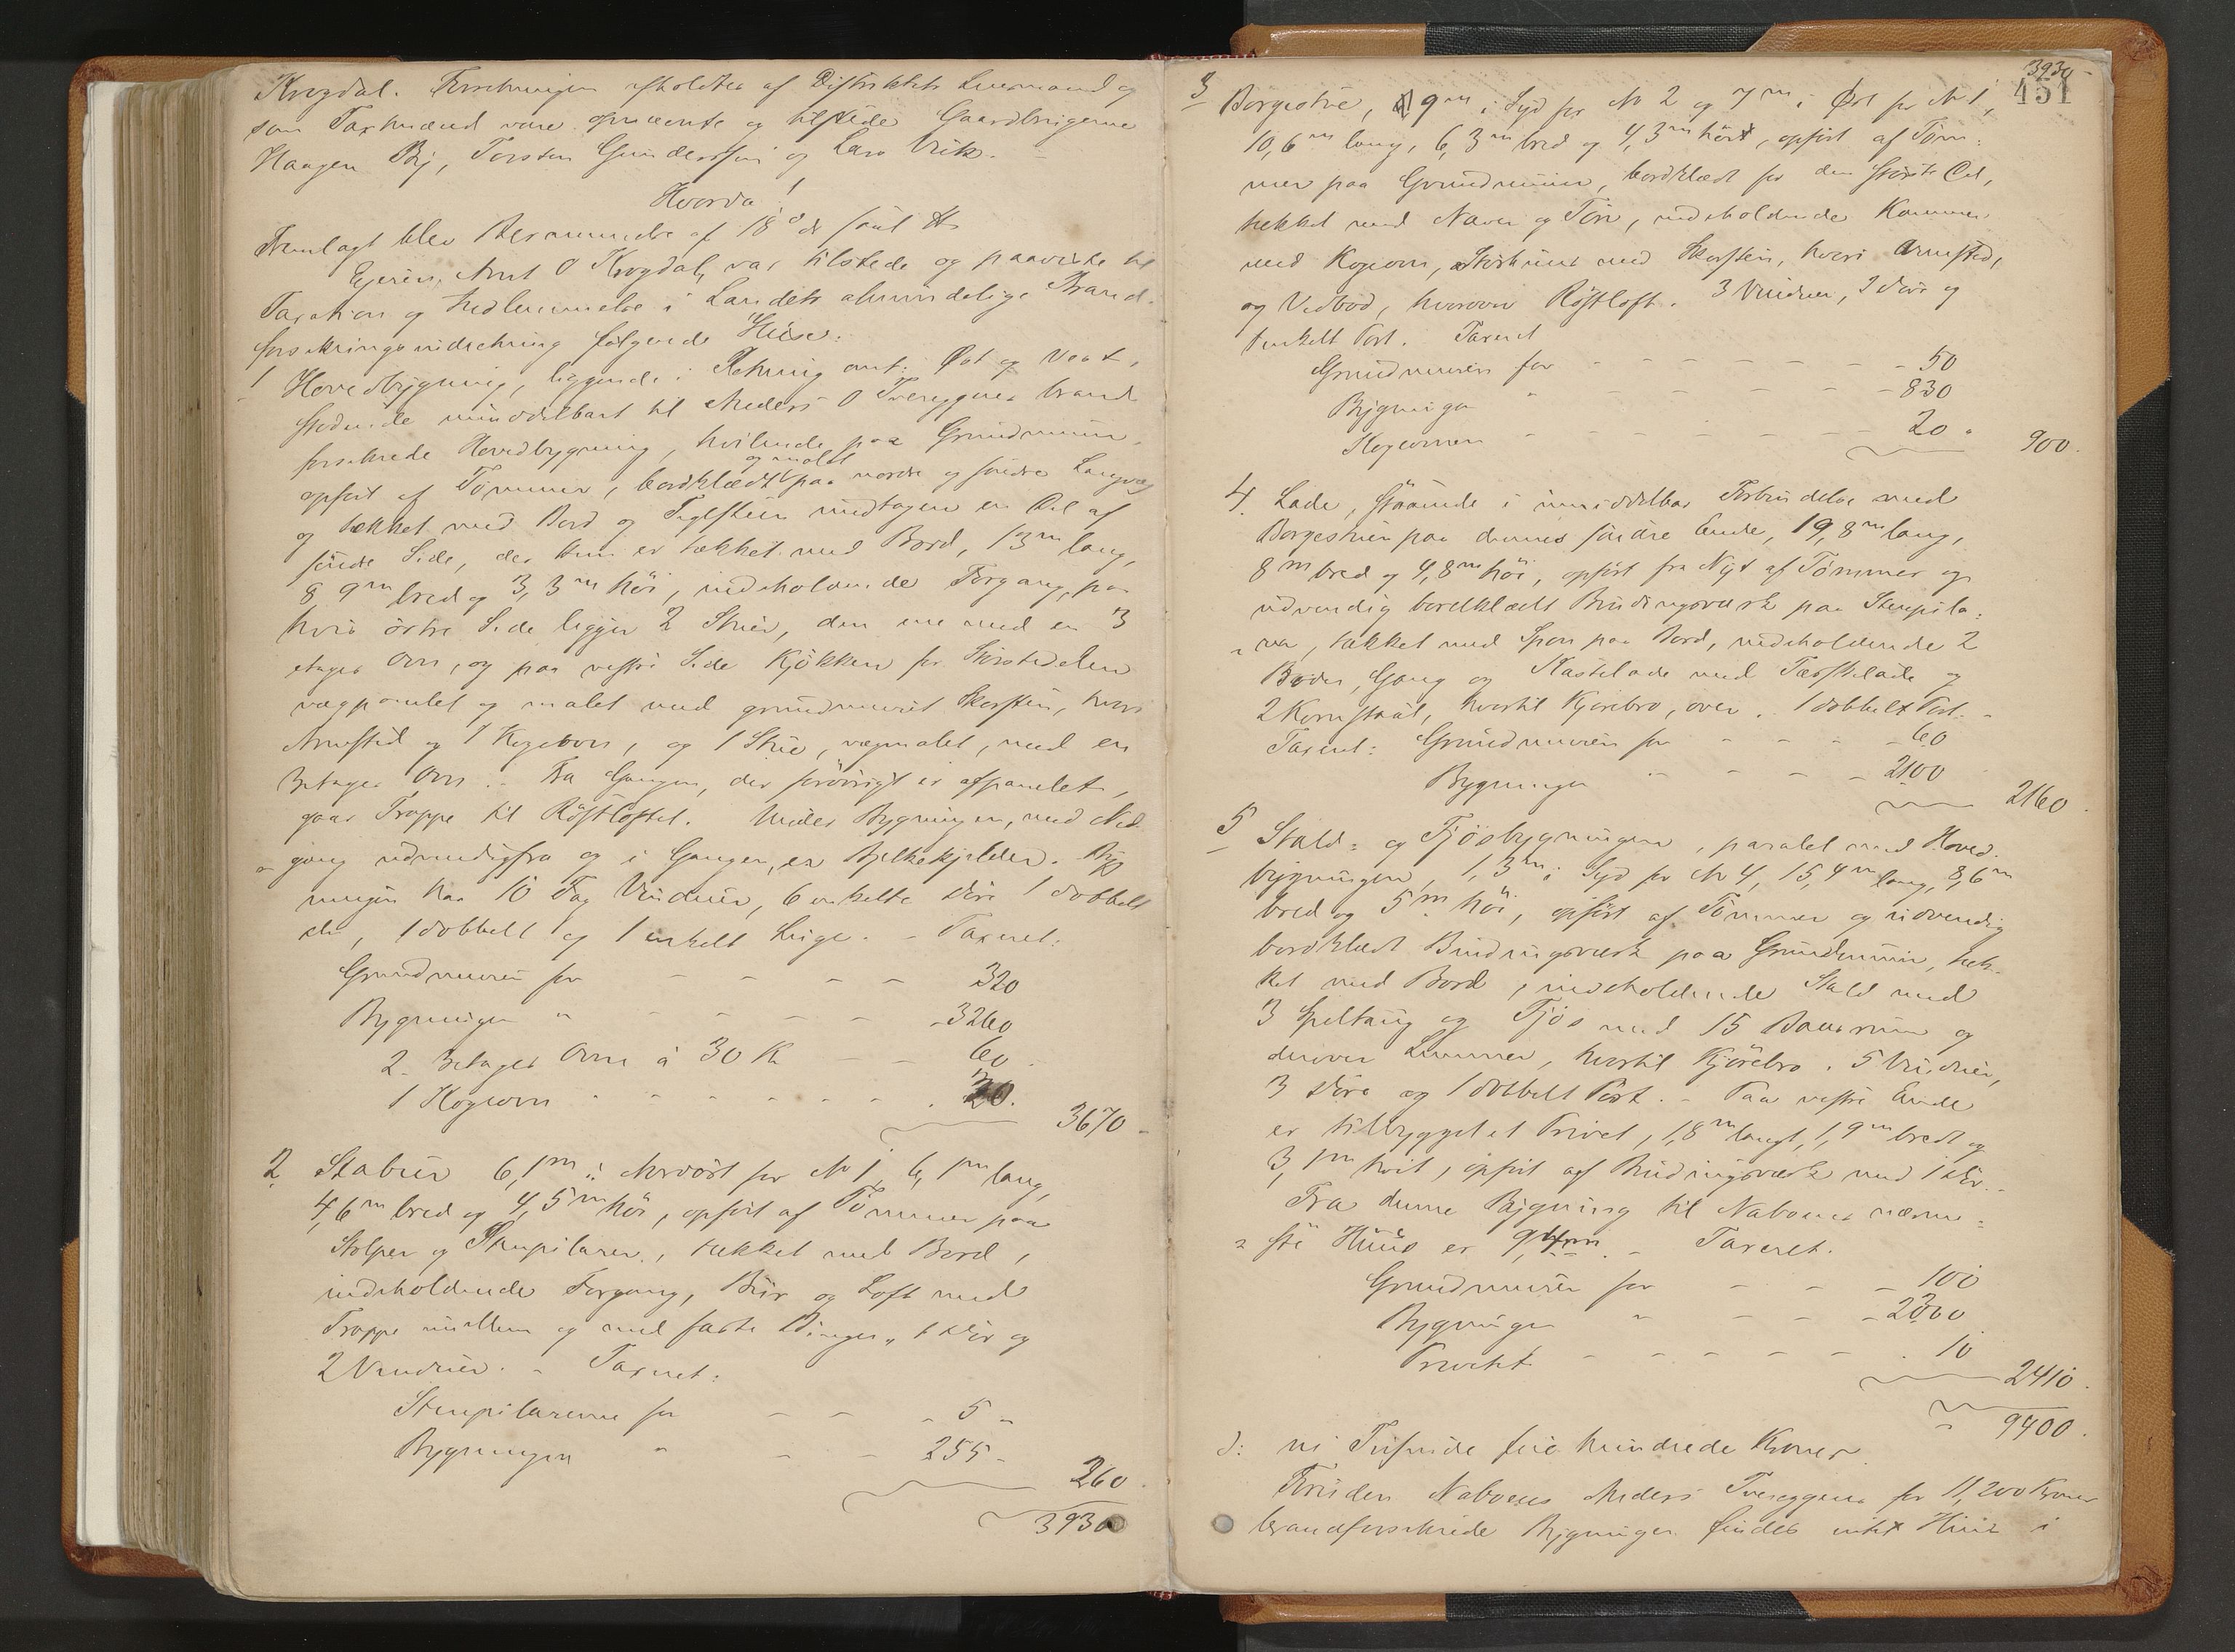 Krogdal. Forretningen afholdtes af Distriktets Lensmand og
som Taxtmænd vare opnævnte og tilstede Gaardbrugerne
Haagen By, Torsten Gundersen og Lars Vik. –
Hvorda!
Fremlagt blev Berammelse af 18de
Eieren, Arnt O Krogdal, var tilstede og paaviste til
Taxation og Indlemmelse i Landets almindelige Brand-
forsikringsindretning følgende Huse:
1 Hovedbygning, liggende i Retning omt: Øst og Vest,
stødende umiddelbart til Anders O Tvereggens brand
forsikrede Hovedbygning, hvilende paa Grundmuur,
opført af Tømmer, bordklædt og malt paa nordre og søndre Langvæg
og tækket med Bord og Teglsteen undtagen en Del af
søndre Side, der kun er tækket med Bord, 13 m lang,
8,9 m bred og 3,3 m høi, indeholdende Forgang, paa
hvis østre Side ligger 2 Stuer, den ene med en 3
etages Ovn, og paa vestre Side Kjøkken for Størstedelen
vægpanelet og malet med grundmuret Skorsten, hvori
Arnested og 1 Kogeovn, og 1 Stue, vægmalet, med en
3etages Ovn. – Fra Gangen, der forøvrigt er afpanelet,
gaar Trappe til Røstloftet. Under Bygningen, med Ned-
gang udvendigfra og i Gangen, er Bjelkekjelder. Byg
ningen har 10 Fag Vinduer, 6 enkelte Døre 1 dobbelt
do, 1 dobbelt og 1 enkelt Luge. – Taxeret:
Grundmuren for – – – 320
Bygningen " – – – – 3260
2 3etages Ovne á 30 Kr – – 60
1 Kogeovn – – – – – – 30.
3670 –
2 Stabur 6,1 m i Nordøst for No 1, 6,1 m lang,
4,6 m bred og 4,5 m høi, opført af Tømmer paa
Stolper og Stenpilarer, tækket med Bord,
indeholdende Forgang, Bur og Loft med
Trappe imellem og med faste Binger, 1 Dør og
2 Vinduer. – Taxeret:
Stenpilarerne for – – – 5 –
Bygningen " – – – 255 –
260
3930
3930 –
451
3 Borgestue, 9 m i Syd for No 2 og 7 m i Øst for No 1,
10,6 m lang, 6,3 m bred og 4,3 m høi, opført af Tøm:
mer paa Grundmuur, bordklædt for den største Del,
tækket med Næver og Törv, indeholdende Kammer
med Kogeovn, Ildhuus med Skorsten, hvori Arnested,
og Vedbod, hvorover Röstloft. 3 Vinduer, 3 Døre og
1 enkelt Port. Taxeret
Grundmuren for – – – – – – 50
Bygningen " – – – – – 830
Kogeovnen – – – – – – 20 "
900.
4. Lade, staaende i umiddelbar Forbindelse med
Borgestuen paa dennes søndre Ende, 19,8 m lang,
8 m bred og 4,8 m høi, opført fra Nyt af Tömmer og
udvendig bordklædt Bindingsværk paa Stenpila:
rer, tækket med Spon paa Bord, indeholdende 2
Boder, Gang og Kastelade med Tærskelade og
2 Kornstaal, hvortil Kjørebro, over. 1 dobbelt Port. –
Taxeret: Grundmuren for – – – – 60
Bygningen – – – – 2100
2160.
5 Stald- og Fjøsbygningen, paralel med Hoved-
bygningen, 1,3 m i Syd for No 4, 15,4 m lang, 8,6 m
bred og 5 m høi, opført af Tømmer og udvendig
bordklædt Bindingsværk paa Grundmuur, tæk-
ket med Bord, indeholdende Stald med
3 Spiltaug og Fjös med 15 Baasrum og
derover Lemmer, hvortil Kjörebro. 5 Vinduer,
3 Döre og 1 dobbelt Port. – Paa vestre Ende
er tilbygget et Privet, 1,8 m langt, 1,9 m bredt og
3,1 m høit, opført af Bindingsværk med 1 Dör. –
Fra denne Bygning til Naboens nærme:
ste Huus er 9,4 m. – Taxeret.
Grundmuren for – – – 100
Bygningen " – – – 2300
Privetet – – – – – 10
2410.
9400.
ɔ: ni Tusinde fire hundrede Kroner
Foruden Naboens Anders Tvereggens for 11,200 Kroner
brandforsikrede Bygninger findes intet Huus i